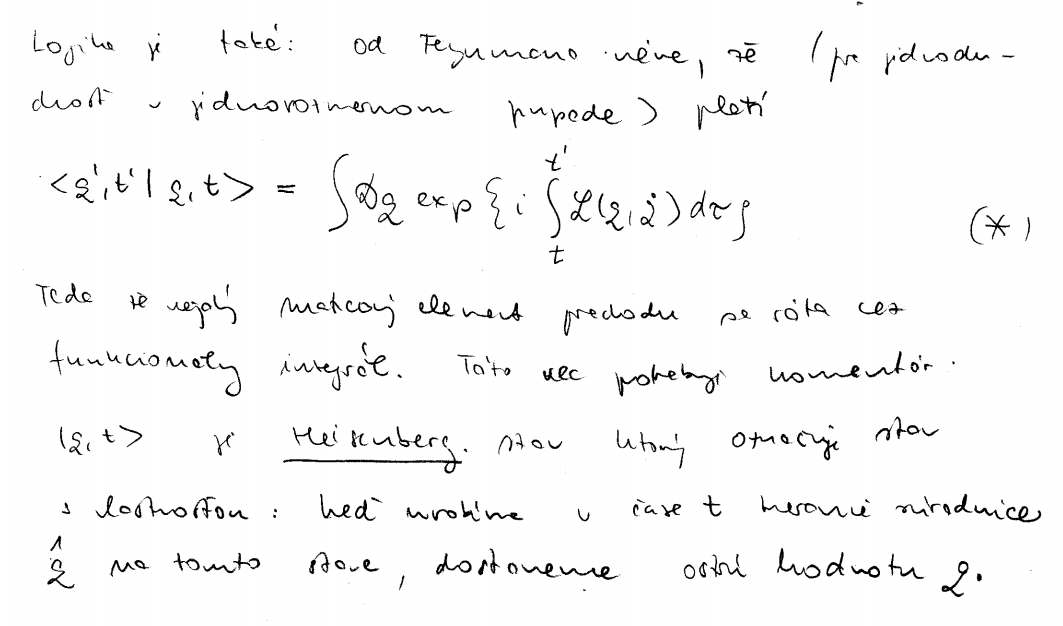 Logika je taká: od Feynmana vieme, že (pre jednodu-
chosť v jednorozmernom prípade) platí
<q',t'|q,t> = ∫Dq exp{i ∫_t^{t'} L(q,q̇)dτ} (*)
Teda že nejaký maticový element prechodu sa ráta cez
funkcionálny integrál. Táto vec potrebuje komentár.
|q,t> je Heisenberg. stav ktorý označuje stav
s vlastnosťou: keď urobíme v čase t meranie súradnice
q̂ na tomto stave, dostaneme ostrú hodnotu q.